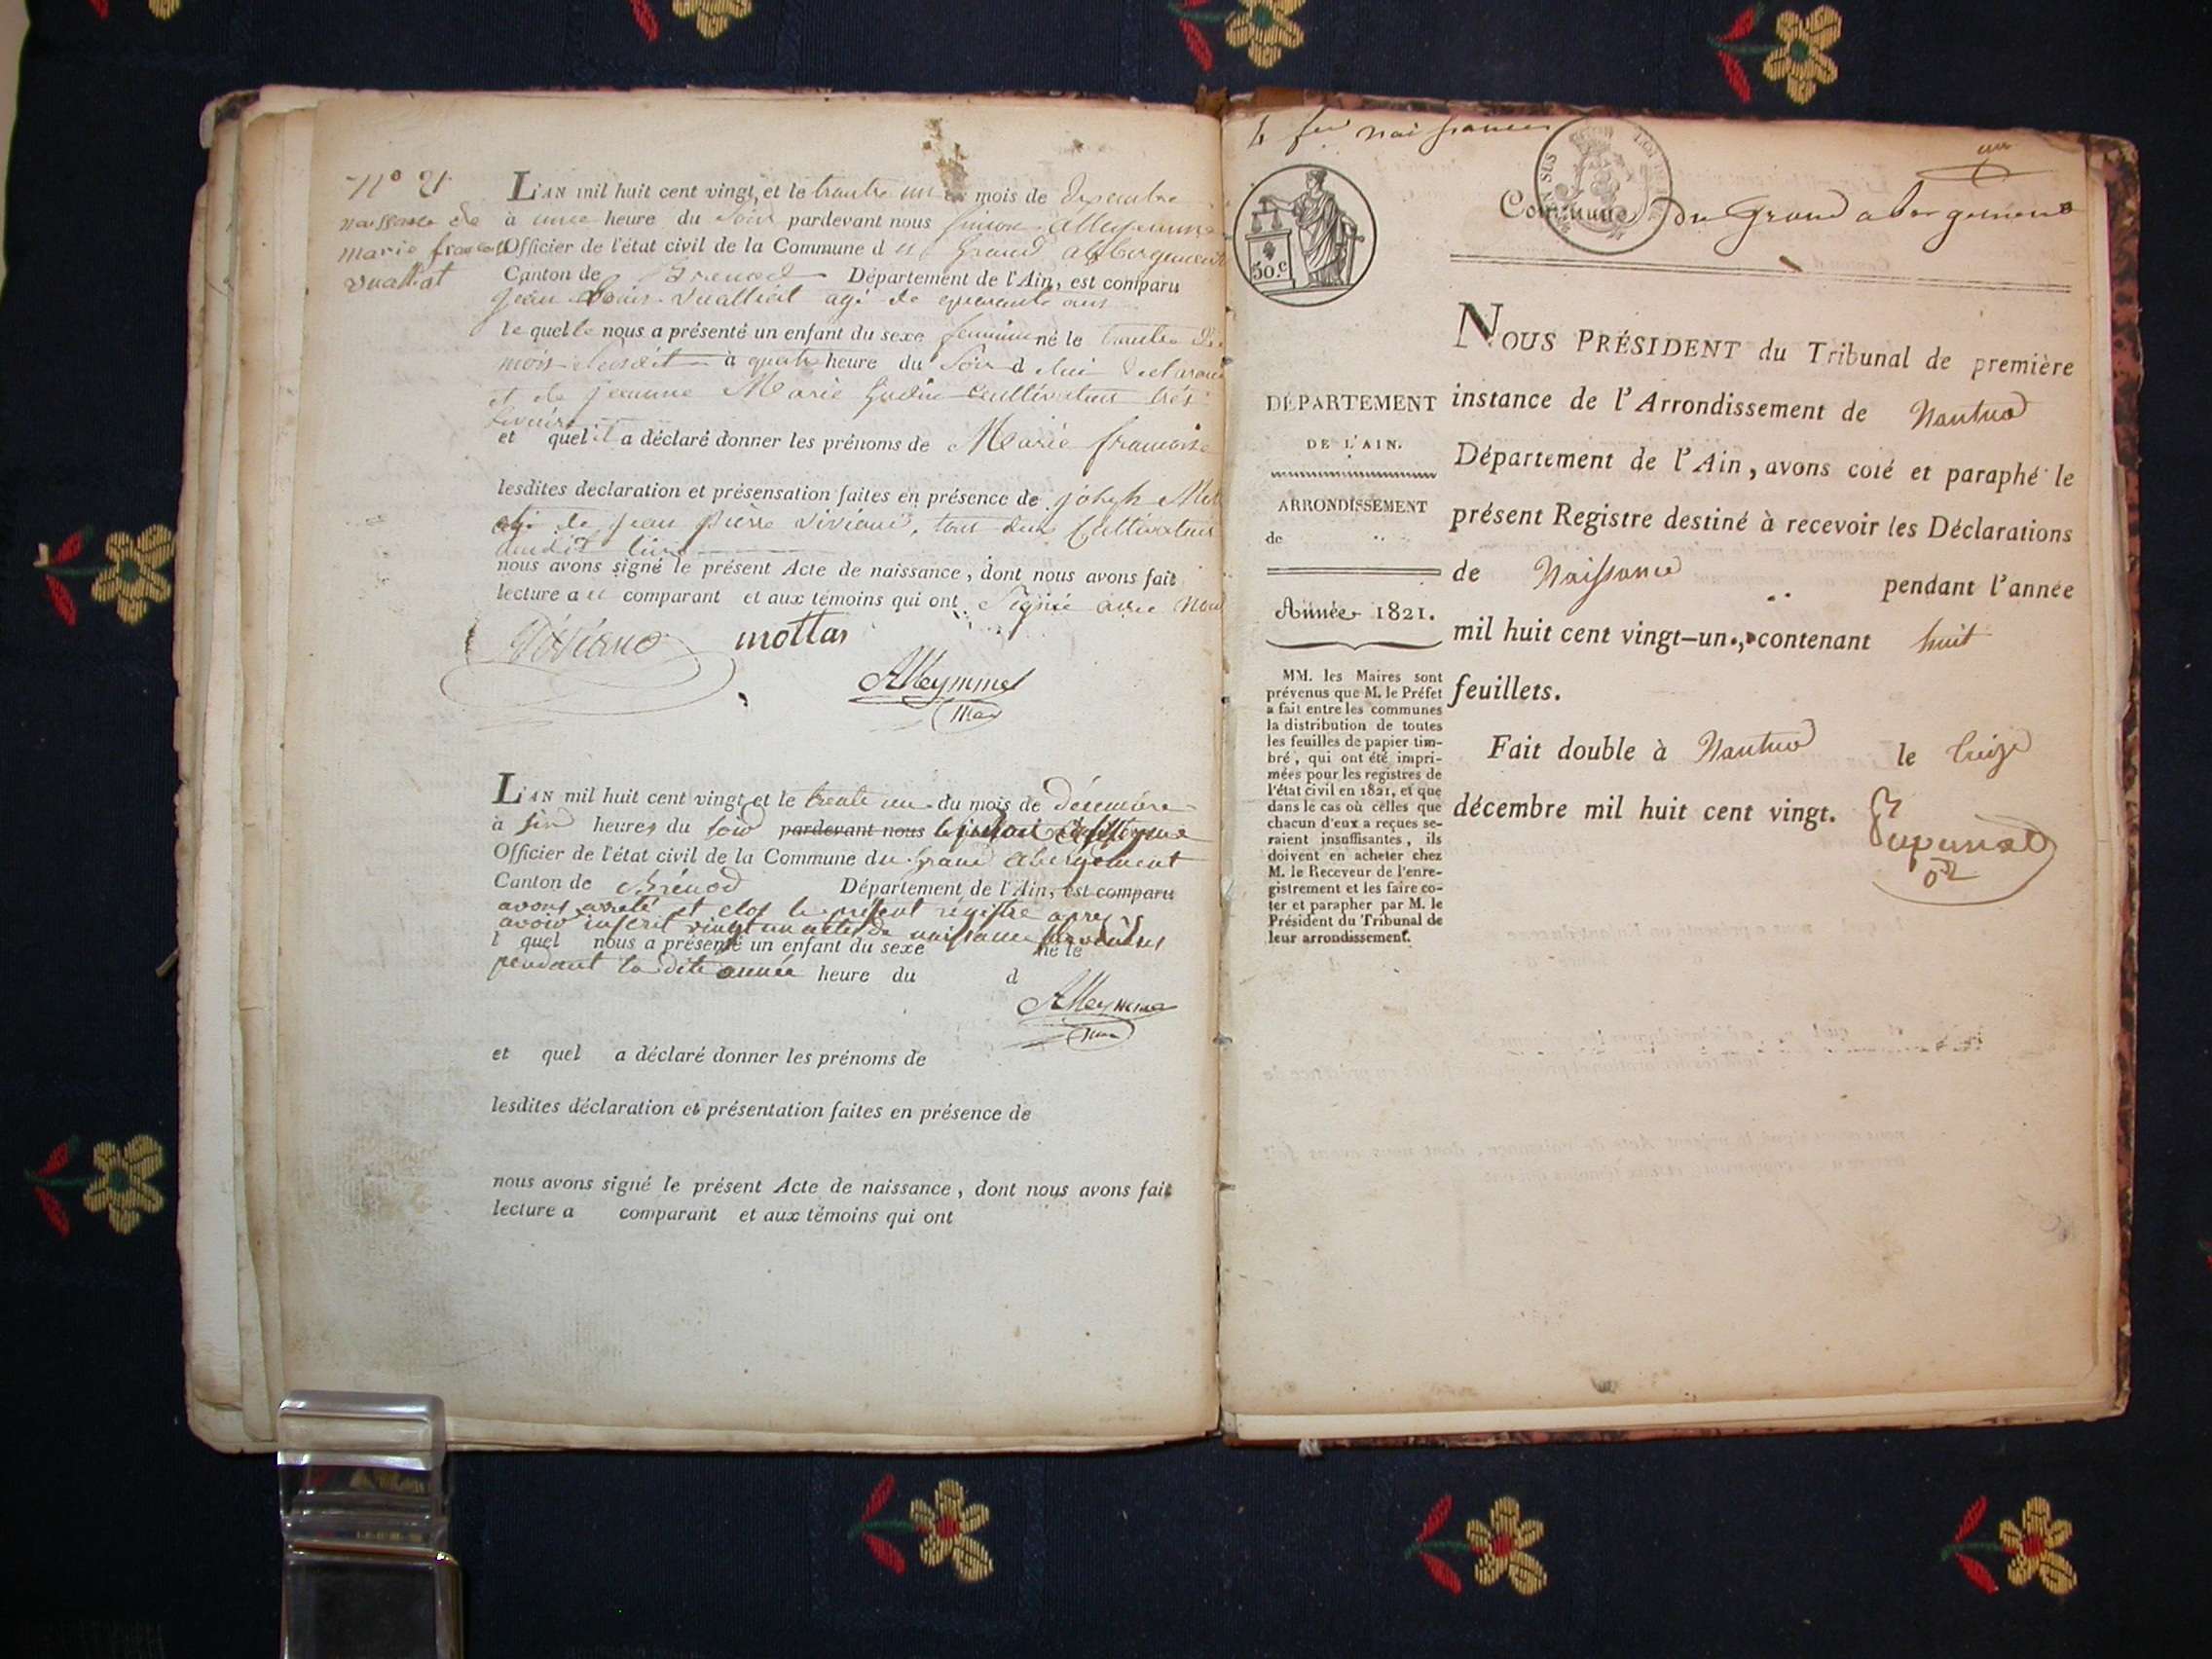 N° 21
naissance de
marie françoise
vualliat
L'AN mil huit cent vingt, et le trante un du mois de
à une heure du soir pardevant nous
Officier de l'état civil de la Commune du Grand abbergement
Canton de Brenod Département de l'Ain, est comparu
jean Louis vualliat agé de quarante ans
le quelle nous a présenté un enfant du sexe feminin né le trante du
mois susdit à quatre heure du soir d lui declarant
et de jeanne Marie cultivateur
et quel il a déclaré donner les prénoms de Marie francoise
lesdites declaration et présensation faites en présence de joseph
de jean pierre viviand, tous deux Cultivateur
dudit lieu
nous avons signé le présent Acte de naissance, dont nous avons fait
lecture a u comparant et aux témoins qui ont signé avec nous
viviand mottas
Alleymme
L'AN mil huit cent vingt, et le trente un du mois de décembre
à six heures du soir pardevant nous
Officier de l'état civil de la Commune du grand abergement
Canton de Brénod Département de l'Ain, est comparu
avons arreté et clos le présent régistre apres
avoir inscrit vingt un actes de naissance
l quel nous a présenté un enfant du sexe né le
pendant la dite année heure du d
Alleymme
et quel a déclaré donner les prénoms de
lesdites déclaration et présentation faites en présence de
nous avons signé le présent Acte de naissance, dont nous avons fait
lecture a comparant et aux témoins qui ont
naissances
un
50.c
Commune du Grand abergement
NOUS PRÉSIDENT du Tribunal de première
instance de l'Arrondissement de Nantua
Département de l'Ain, avons coté et paraphé le
présent Registre destiné à recevoir les Déclarations
de Naissance pendant l'année
mil huit cent vingt-un, contenant huit
feuillets.
Fait double à Nantua le treize
décembre mil huit cent vingt.
DÉPARTEMENT
DE L'AIN.
ARRONDISSEMENT
de
Année 1821.
MM. les Maires sont
prévenus que M. le Préfet
a fait entre les communes
la distribution de toutes
les feuilles de papier tim-
bré, qui ont été impri-
mées pour les registres de
l'état civil en 1821, et que
dans le cas où celles que
chacun d'eux a reçues se-
raient insuffisantes, ils
doivent en acheter chez
M. le Receveur de l'enre-
gistrement et les faire co-
ter et parapher par M. le
Président du Tribunal de
leur arrondissement.